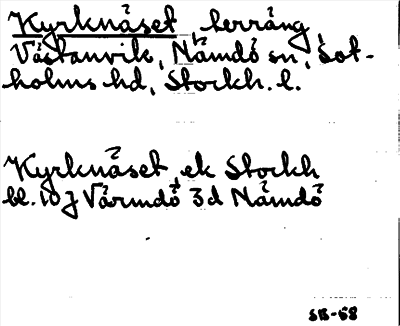 Kyrknäset, terräng,
Västanvik, Nämdö sn, Sot-
holms hd, Stockh. l.
Kyrknäset ek Stockh
bl. 10 J Värmdö 3d Nämdö
SB-68